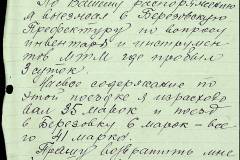 По Вашему распоряжению
я выезжал в Березовскую
Префектуру по вопросу
инвентаря и инструмен
тов МТМ где пробыл
3 суток.
На свое содержание по
этой поездке я израсходо
вал 35 марок и поезд
в Березовку 6 марок - все
го 41 марко.
Прошу возвратить мне